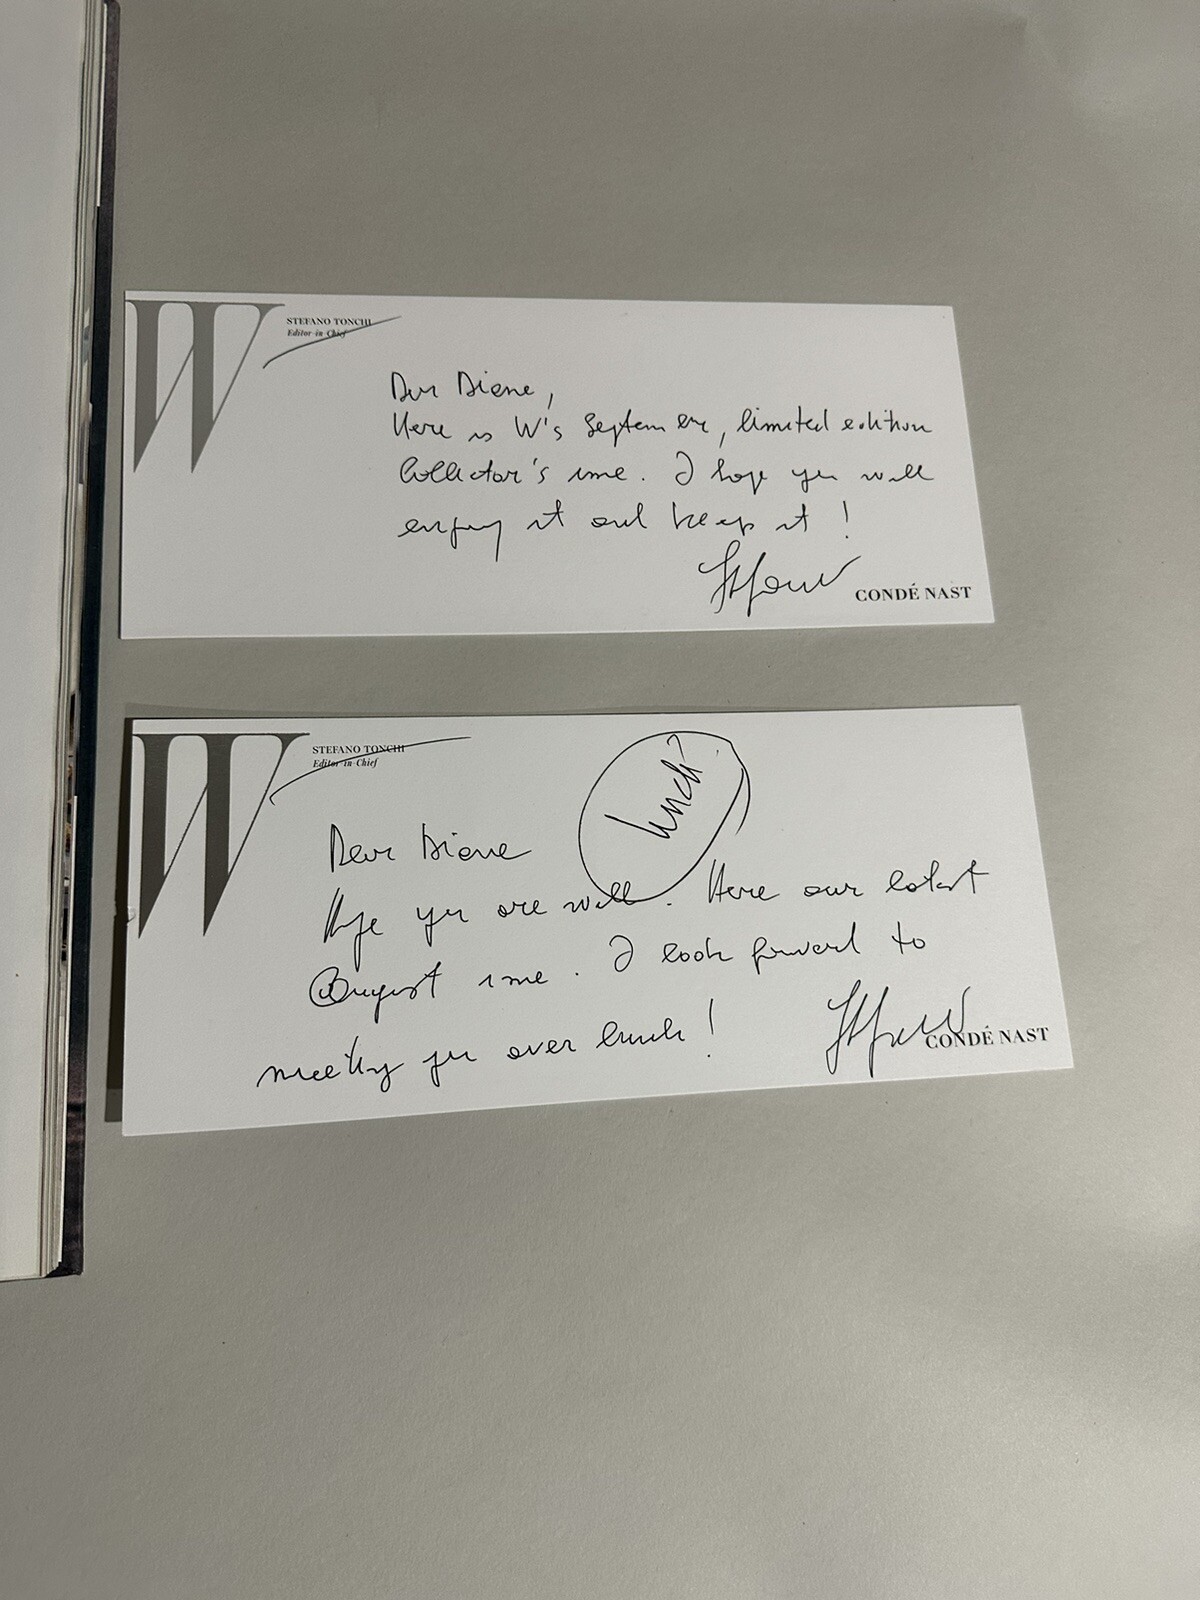 W
STEFANO TONCHI
Editor-in-Chief
Dear Diane,
Here is W's September, limited edition
Collector's issue. I hope you will
enjoy it and keep it!
Stefano
CONDÉ NAST
W
STEFANO TONCHI
Editor-in-Chief
lunch?
Dear Diane
Hope you are well. Here our latest
August issue. I look forward to
meeting you over lunch!
Stefano
CONDÉ NAST